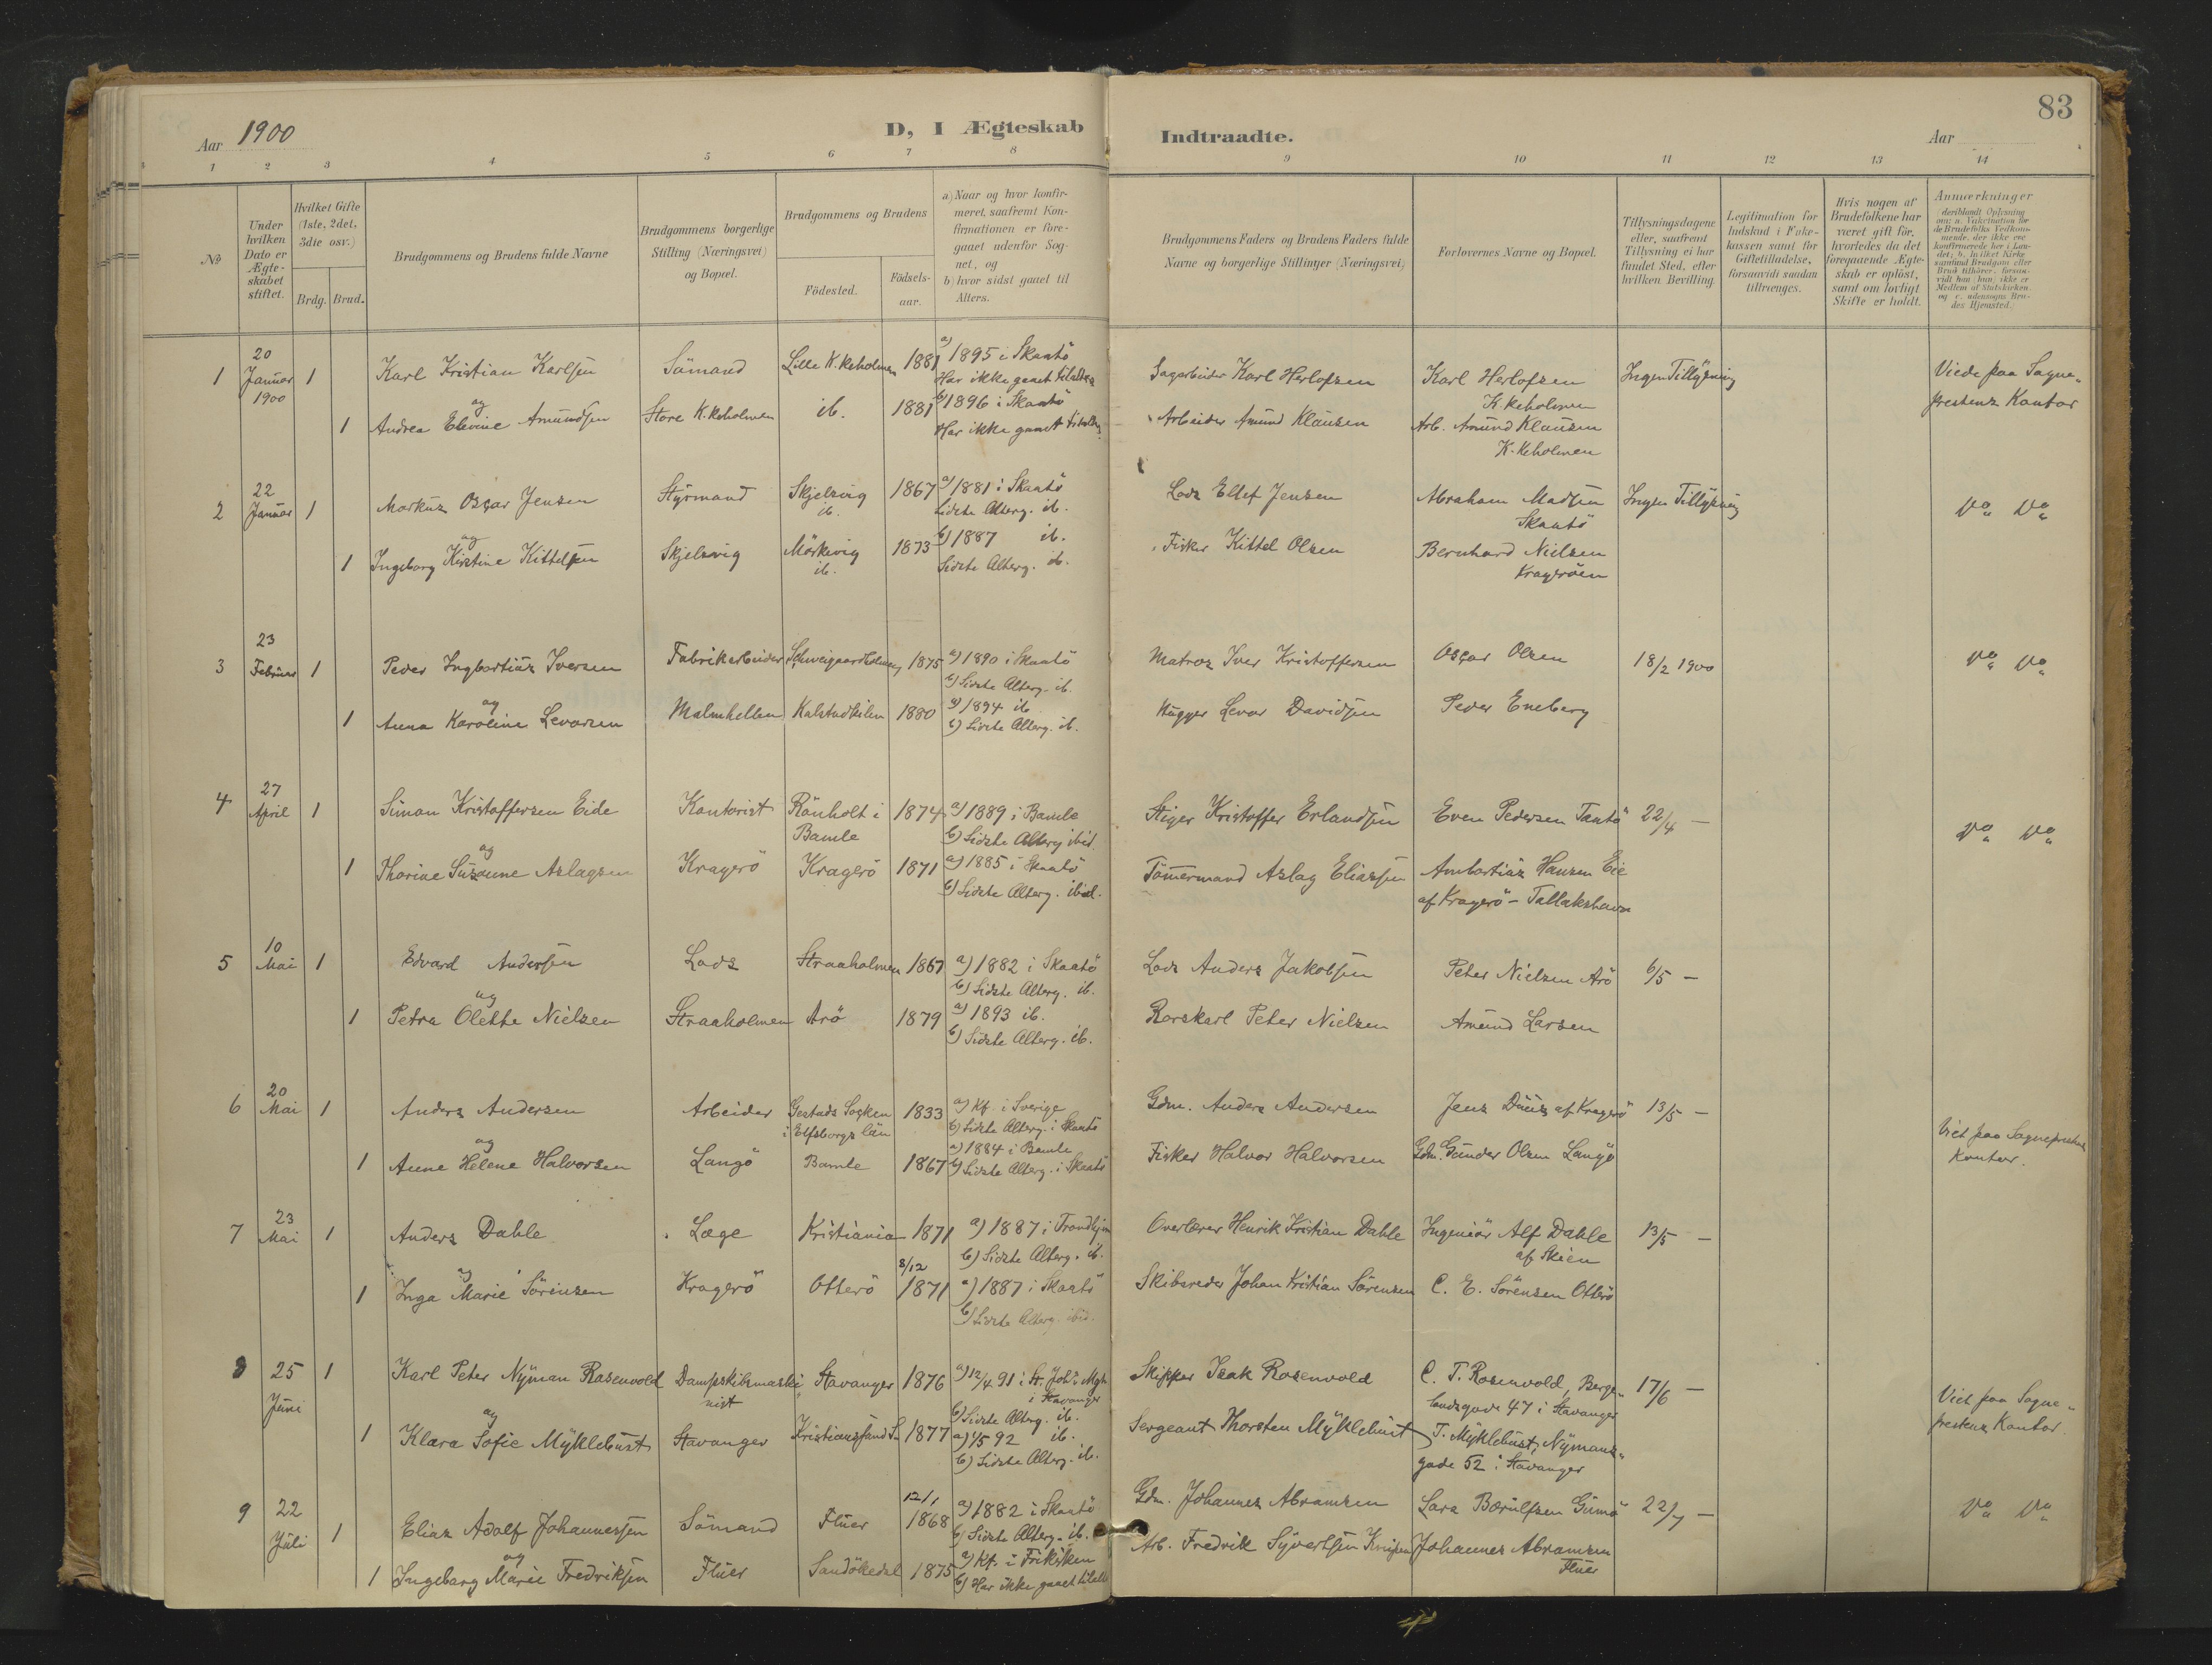 Aar 1900
D, I Ægteskab
Indtraadte.
Aar
83
1 2 3 4 5 6 7 8 9 10 11 12 13 14
№
Under hvilken Dato er Ægteskabet stiftet.
Hvilket Gifte (1ste, 2det, 3die osv.)
Brdg. Brud.
Brudgommens og Brudens fulde Navne
Brudgommens borgerlige Stilling (Næringsvei) og Bopæl.
Brudgommens og Brudens
Fødested.
Fødselsaar.
a) Naar og hvor konfirmeret, saafremt Konfirmationen er foregaaet udenfor Sognet, og
b) hvor sidst gaaet til Alters.
Brudgommens Faders og Brudens Faders fulde Navne og borgerlige Stillinger (Næringsvei)
Forlovernes Navne og Bopæl.
Tillysningsdagene eller, saafremt Tillysning ei har fundet Sted, efter hvilken Bevilling.
Legitimation for Indskud i Enkekassen samt for Giftetilladelse, forsaavidt saadan tiltrænges.
Hvis nogen af Brudefolkene har været gift før, hvorledes da det foregaaende Ægteskab er opløst, samt om lovligt Skifte er holdt.
Anmærkninger
1 20 Januar 1900 1 Karl Kristian Karlsen Sömand Lille K.keholmen 1881 a) 1895 i Skaatö Har ikke gaaet til alters Sagarbeider Karl Herlofsen Karl Herlofsen K.keholmen Ingen Tillysning Viede paa Sogneprestens Kontor
og
1 Andrea Elevine Amundsen Store K.keholmen ib. 1881 1896 i Skaatö Har ikke gaaet til alters Arbeider Amund Klausen Arb. Amund Klausen K.keholmen
2 22 Januar 1 Markus Oscar Jensen Styrmand Skjelsvig ib. 1867 a) 1881 i Skaatö Sidste Alterg. ib. Lods Ellef Jensen Abraham Madsen Skaatö Ingen Tillysning Do Do
og
1 Ingeborg Kirstine Kittelsen Skjelsvig Mörkevig ib. 1873 1887 ib. Sidste Alterg. ib. Fisker Kittel Olsen Bernhard Nielsen Kragerøen
3 23 Februar 1 Peder Ingbortius Iversen Fabrikarbeider Schweigaardholmen 1875 a) 1890 i Skaatö b) Sidste Alterg. ib. Matros Iver Kristoffersen Oscar Olsen 18/2 1900 Do Do
og
1 Anna Karoline Levorsen Malmhellen Kalstadkilen 1880 a) 1894 ib b) Sidste Alterg. ib. Hugger Levor Davidsen Peder Eneberg
4 27 April 1 Simon Kristoffersen Eide Kontorist Rönholt i Bamle 1874 a) 1889 i Bamle b) Sidste Alterg. ibid. Stiger Kristoffer Erlandsen Even Pedersen Taatö 22/4 — Do Do
og
1 Thorine Susanne Aslagsen Kragerö Kragerö 1871 a) 1885 i Skaatö b) Sidste Alterg. ibid. Tömmermand Aslag Eliassen Ambortius Hansen Eie af Kragerö - Tallakshavn
5 10 Mai 1 Edvard Andersen Lods Straaholmen 1867 a) 1882 i Skaatö b) Sidste Alterg. ib. Lods Anders Jakobsen Peter Nielsen Arö 6/5 —
og
1 Petra Olette Nielsen Straaholmen Arö 1879 a) 1893 ib. b) Sidste Alterg. ib. Rorskarl Peter Nielsen Amund Larsen
6 20 Mai 1 Anders Andersen Arbeider Gestads Socken i Elfsborgs län 1833 a) Kf. i Sverige b) Sidste Alterg. i Skaatö Gdm. Anders Andersen Jens Duus af Kragerö 13/5 — Viet paa Sogneprestens Kontor.
og
1 Anne Helene Halvorsen Langö Bamle 1867 a) 1884 i Bamle b) Sidste Alterg. i Skaatö Fisker Halvor Halvorsen Gdm. Gunder Olsen Langö
7 23 Mai 1 Anders Dahle Læge Kristiania 1871 a) 1887 i Trondhjem b) Sidste Alterg. ib. Overlærer Henrik Kristian Dahle Ingeniör Alf Dahle af Skien 13/5 —
og
1 Inga Marie Sörensen Kragerö Otterö 8/12 1871 a) 1887 i Skaatö b) Sidste Alterg. ibid. Skibsreder Johan Kristian Sörensen C. E. Sörensen Otterö
8 25 Juni 1 Karl Peter Nyman Rosenvold Dampskibsmaskinist Stavanger 1876 a) 12/4 91 i St. Joh's Mgh. i Stavanger b) Sidste Alterg. ib. Skipper Isak Rosenvold C. T. Rosenvold, Bergelandsgade 47 i Stavanger 17/6 — Viet paa Sogneprestens Kontor.
og
1 Klara Sofie Myklebust Stavanger Kristianssand S. 1877 a) 1/5 92 ib. b) Sidste Alterg. ib. Sergeant Thorsten Myklebust T. Myklebust, Nymansgade 52 i Stavanger
9 22 Juli 1 Elias Adolf Johannessen Sömand Fluer 12/1 1868 a) 1882 i Skaatö b) Sidste Alterg. ib. Gdm. Johannes Abramsen Lars Bærulfsen Gumö 22/7 — Do Do
og
1 Ingeborg Marie Fredriksen Fluer Sandökedal 1875 a) Kf. i Frikirken b) Har ikke gaaet til alt Arb. Fredrik Syvertsen Johannes Abramsen Fluer